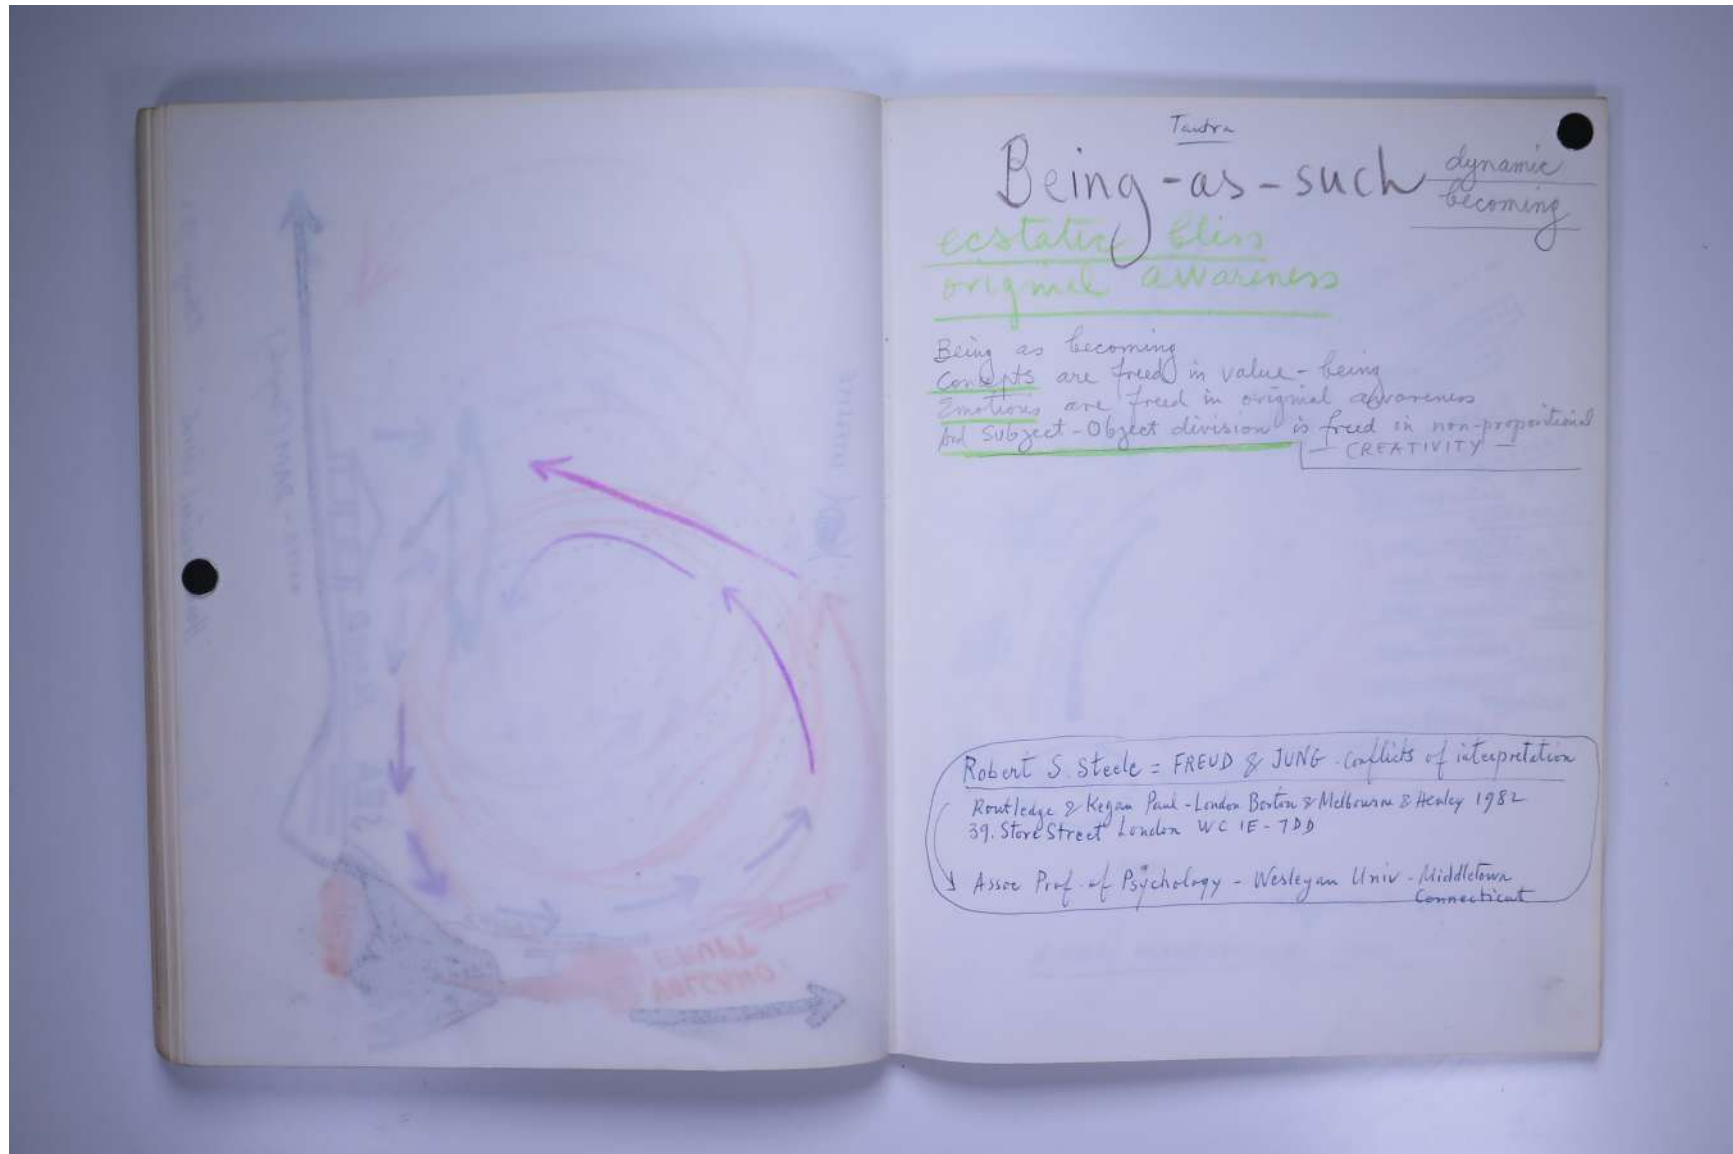 Tantra
Being-as-such
dynamic
becoming
ecstatic bliss
original awareness
Being as becoming
Concepts are freed in value-being
Emotions are freed in original awareness
and Subject-Object division is freed in non-propositional
— CREATIVITY —
Robert S. Steele = FREUD & JUNG - Conflicts of interpretation
Routledge & Kegan Paul - London Boston & Melbourne & Henley 1982
39. Store Street London WC 1E - 7DD
Assoc Prof. of Psychology - Wesleyan Univ - Middletown
Connecticut
VOLCANO
ERUPT